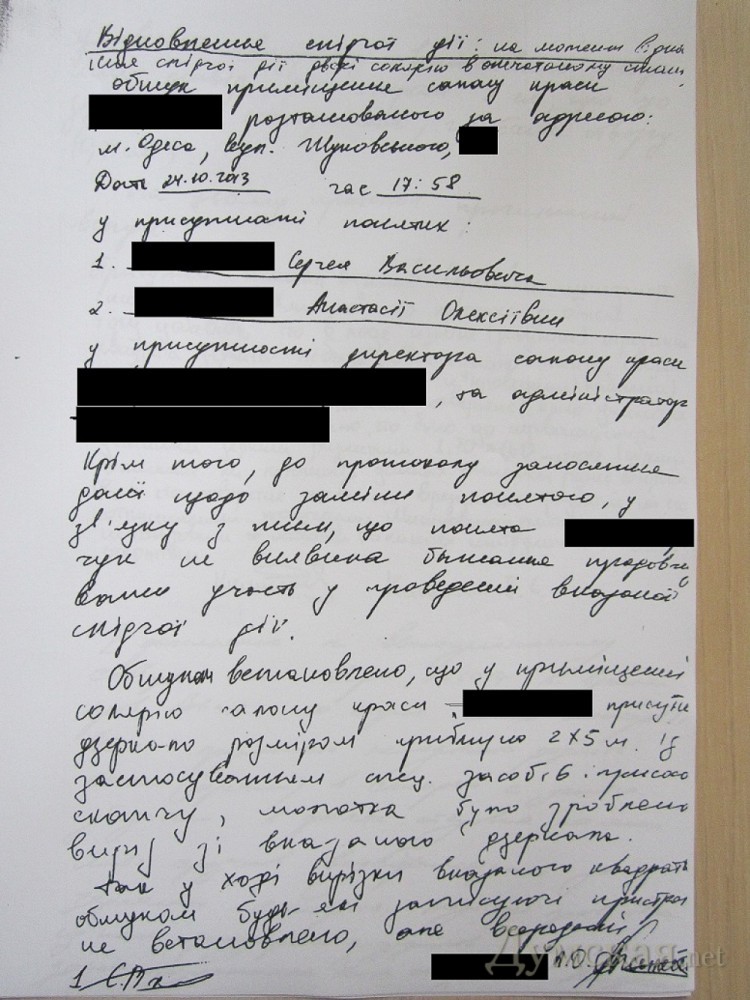 Відновлення слідчої дії: на момент відно
слідчої дії двері солярію в опечатаному стані
обшук приміщення салону краси
розташованого за адресою:
м. Одеса, вул. Жуковського,
Дата 24.10.2013 час 17:58
у присутності понятих:
1. Сергея Васильовича
2. Анастасії Олексіївни
у присутності директора салону краси
, та адміністратор
Крім того, до протоколу
щодо заміни понятого, у
зв'язку з тим, що понята
чук не виявила бажання продовжу
вати участь у проведенні вказаної
слідчої дії.
Обшуком встановлено, що у приміщенні
солярію салону краси присутн
дзеркало розміром приблизно 2х5 м. Із
застосуванням спец. засобів
, молотка було зроблено
виріз зі вказаного дзеркала.
Так у ході вирізки вказаного квадрата
обшуком будь-які записуючі пристрої
не встановлено, але всередині
Думская.net
1